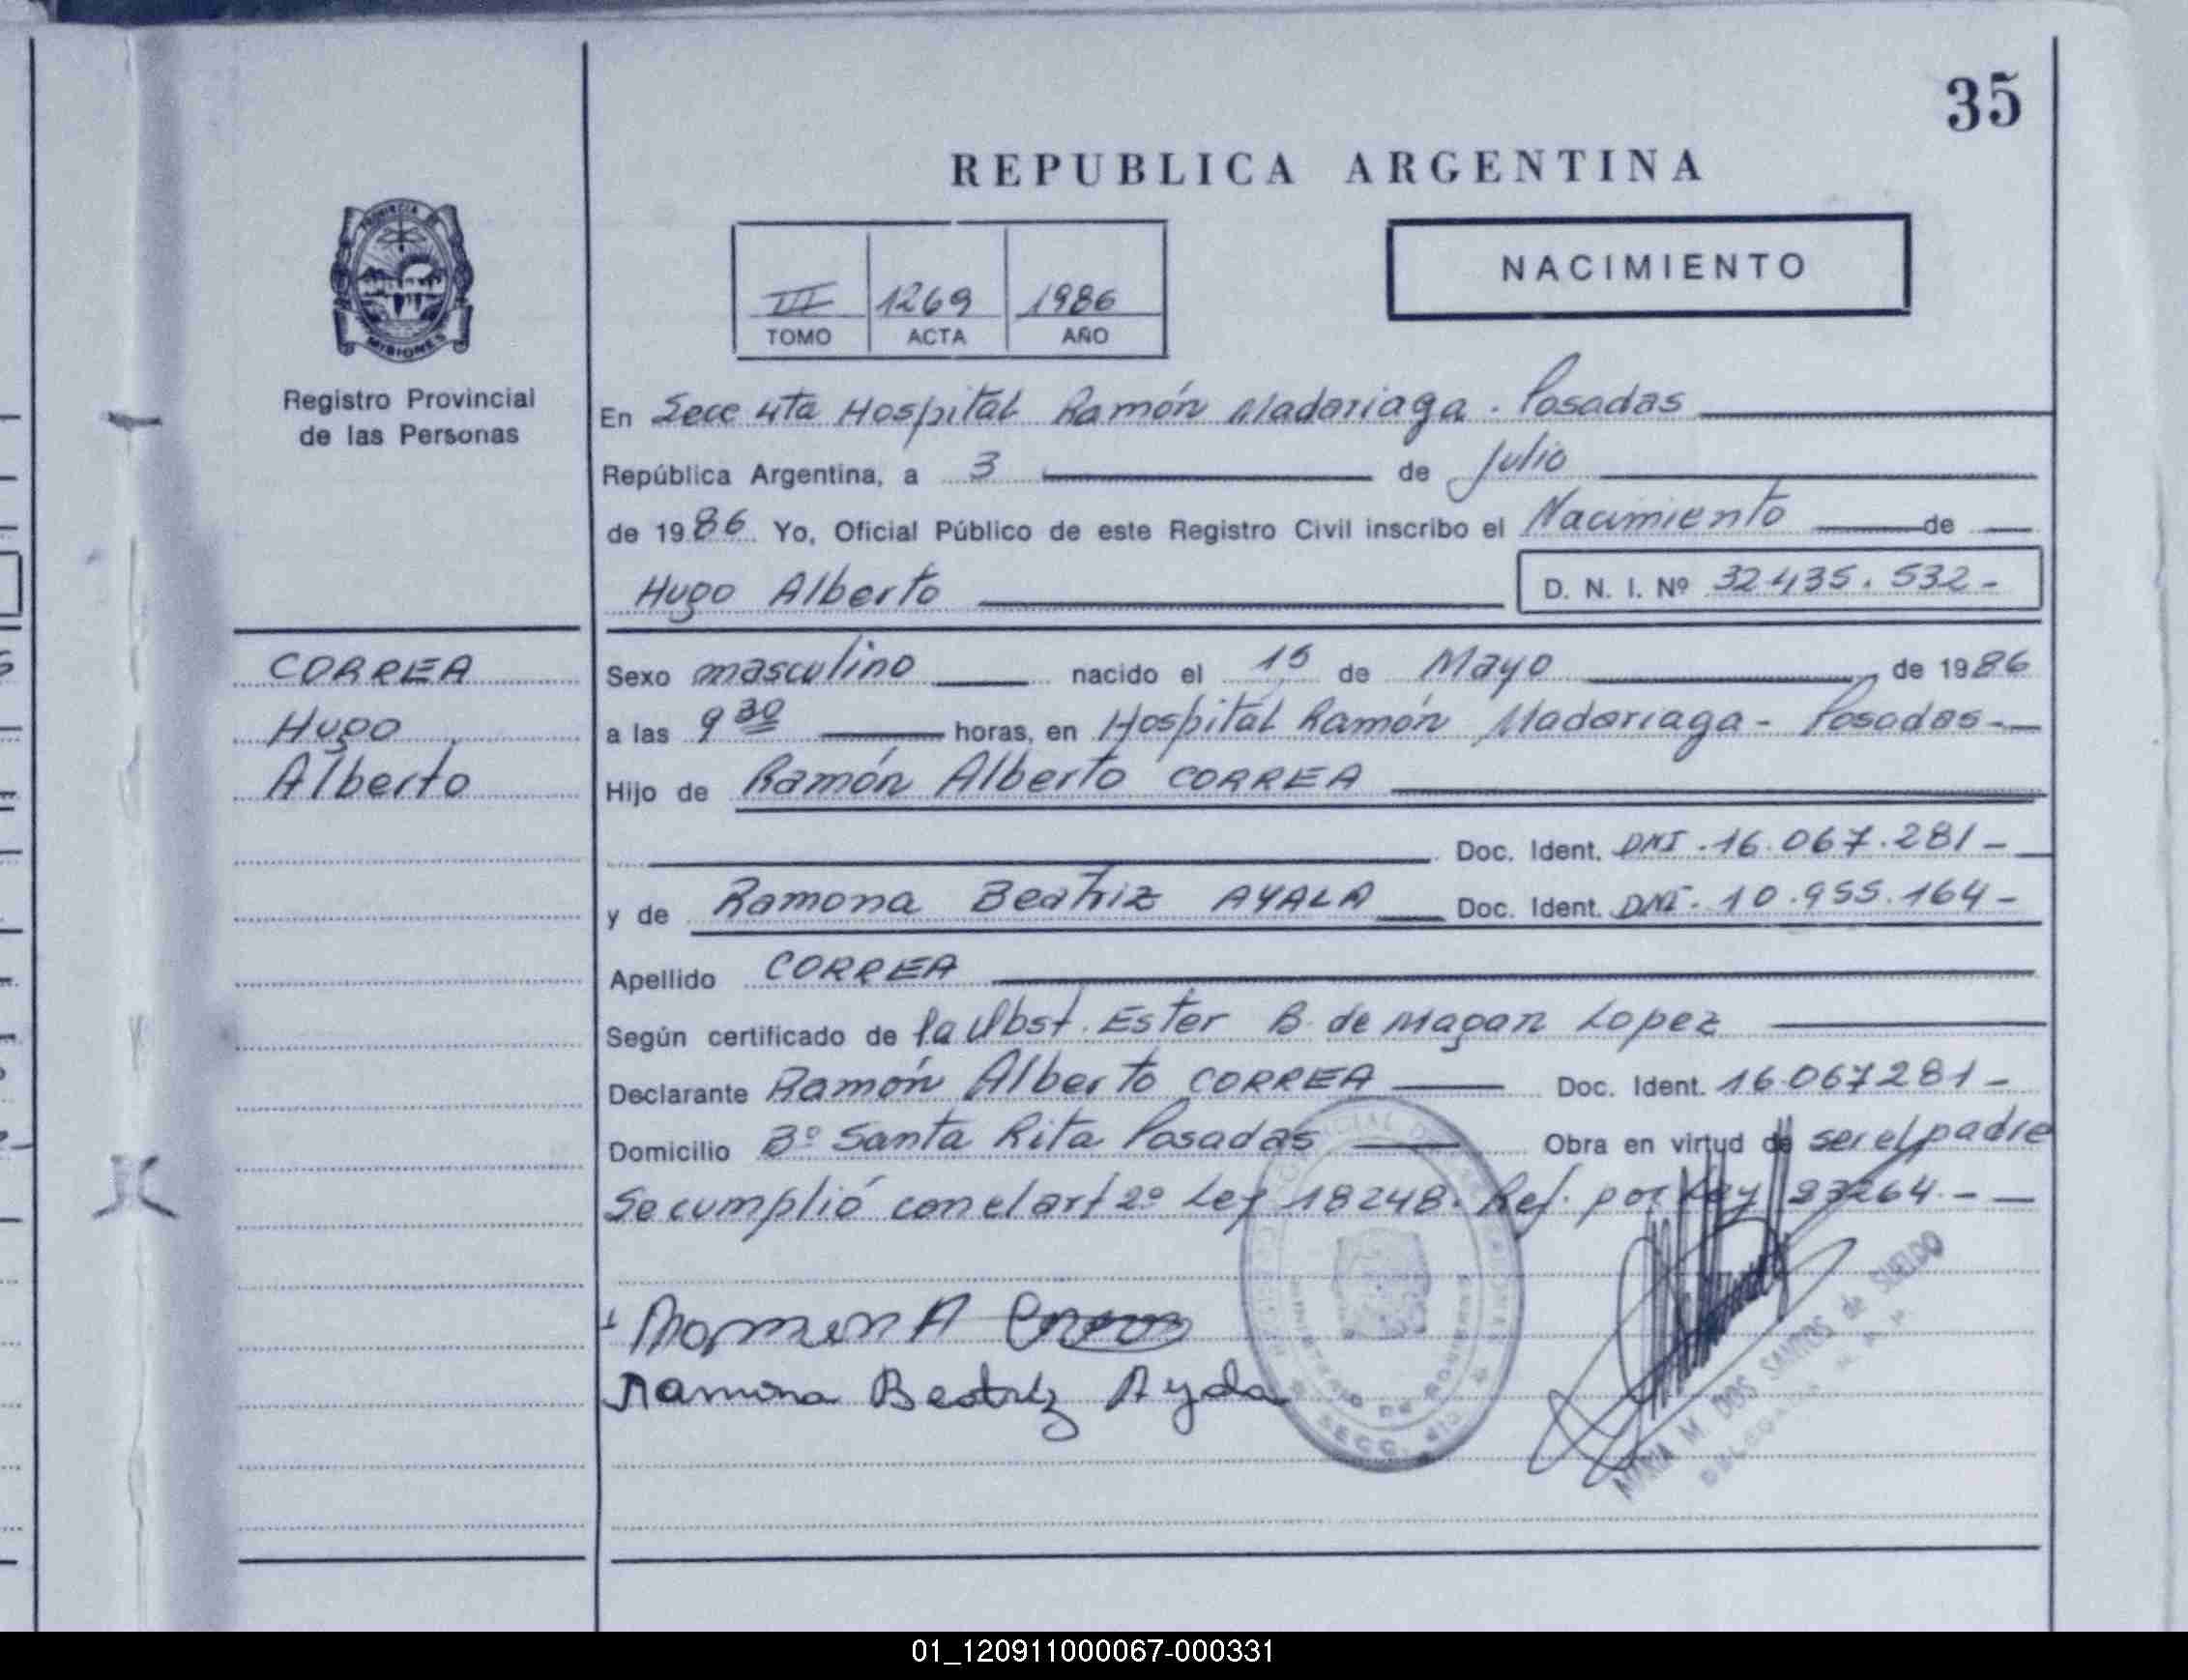 35
REPUBLICA ARGENTINA
PROVINCIA DE
MISIONES
Registro Provincial
de las Personas
III 1269 1986
TOMO ACTA AÑO
NACIMIENTO
En Secc 4ta Hospital Ramón Madariaga. Posadas
República Argentina, a 3 de Julio
de 1986. Yo, Oficial Público de este Registro Civil inscribo el Nacimiento de
Hugo Alberto D. N. I. Nº 32.435.532-
CORREA
Hugo
Alberto
Sexo masculino nacido el 15 de Mayo de 1986
a las 9 30 horas, en Hospital Ramón Madariaga - Posadas-
Hijo de Ramón Alberto CORREA
Doc. Ident. DNI-16.067.281-
y de Ramona Beatriz AYALA Doc. Ident. DNI-10.955.164-
Apellido CORREA
Según certificado de la Obst. Ester B. de Magan Lopez
Declarante Ramón Alberto CORREA Doc. Ident. 16.067281-
Domicilio Bº Santa Rita Posadas Obra en virtud de ser el padre
Se cumplió con el art 2º Ley 18248. Ref. por Ley 23264.-
Ramon A
Ramona Beatriz Ayala
MINISTERIO DE GOBIERNO
SECC. 4ta
MARIA M. DOS SANTOS de SUELDO
01_120911000067-000331